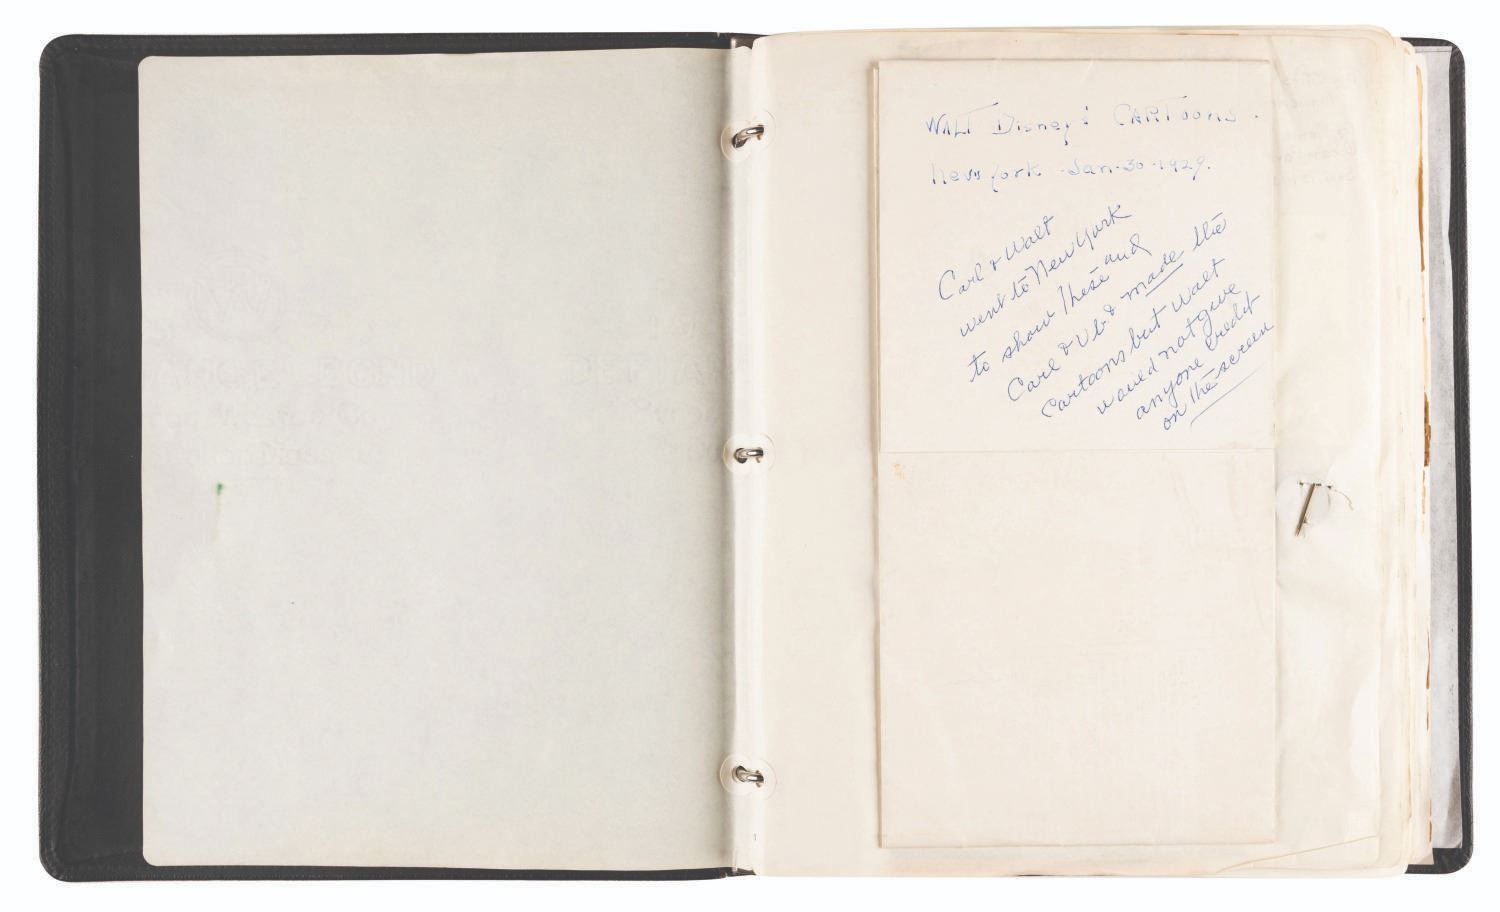 WALT Disney's CARTOONS.
New York - Jan - 30 - 1929.
Carl & Walt
went to New York
to show these and
Carl & Ub & made the
cartoons but Walt
would not give
anyone credit
on the screen